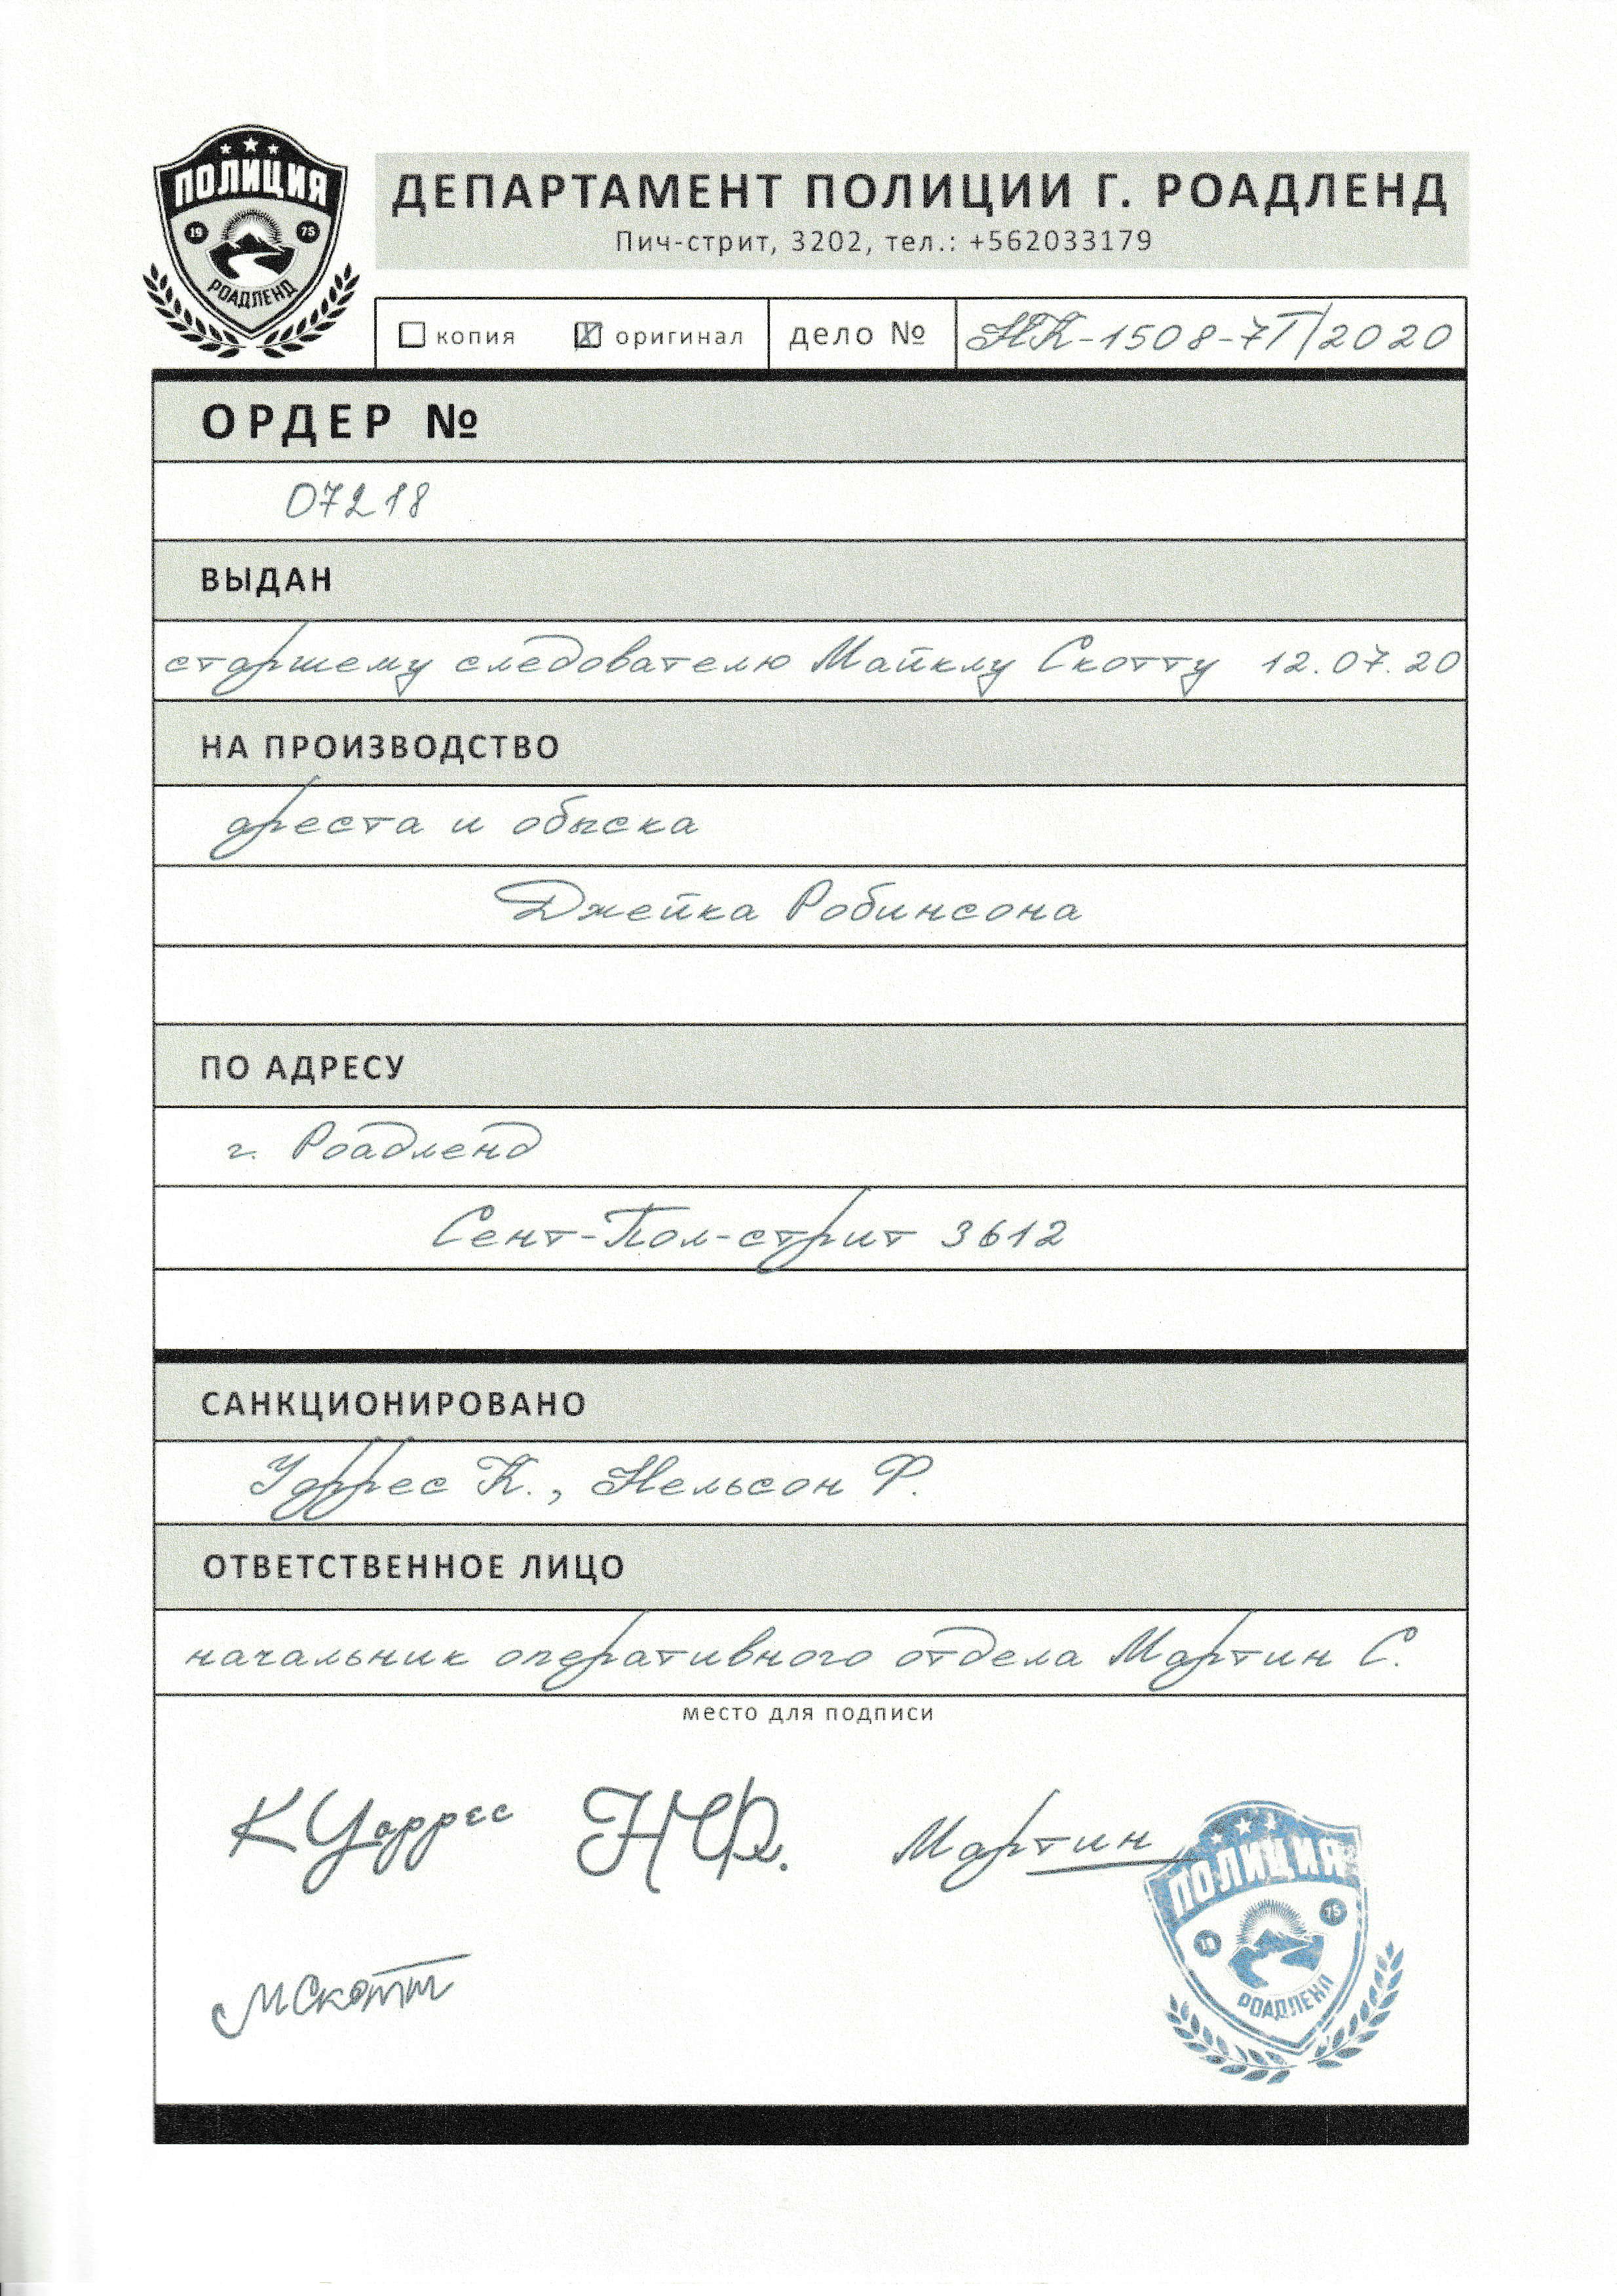 ПОЛИЦИЯ
19 75
РОАДЛЕНД
ДЕПАРТАМЕНТ ПОЛИЦИИ Г. РОАДЛЕНД
Пич-стрит, 3202, тел.: +562033179
копия оригинал дело № НК-1508-7Т/2020
ОРДЕР №
07218
ВЫДАН
старшему следователю Майклу Скотту 12.07.20
НА ПРОИЗВОДСТВО
ареста и обыска
Джейка Робинсона
ПО АДРЕСУ
г. Роадленд
Сент-Пол-стрит 3612
САНКЦИОНИРОВАНО
Уаррес К., Нельсон Ф.
ОТВЕТСТВЕННОЕ ЛИЦО
начальник оперативного отдела Мартин С.
место для подписи
К Уаррес НФ. Мартин
М Скотт
ПОЛИЦИЯ
19 75
РОАДЛЕНД